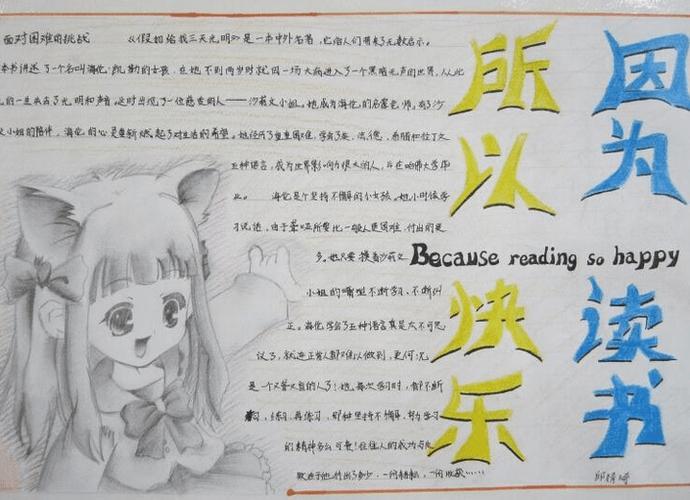 面对困难的挑战 《假如给我三天光明》是一本中外名著,它给人们带来了无数启示。
本书讲述了一个名叫海伦·凯勒的女孩,在她不到两岁时就因一场大病进入了个黑暗无声的世界,从此
她的一生失去了光明和声音。这时出现了一位慈爱的人——沙莉文小姐。她成为海伦的启蒙老师,有了沙
文小姐的陪伴,海伦的心里重新燃起了对生活的希望。她经历了重重困难,学会了英、法、德、希腊和拉丁文
五种语言,成为世界影响力很大的人,并在哈佛大学毕
业。 海伦是个坚持不懈的小女孩。她小时候学
习说话,由于聋哑所要比一般人更困难,付出的更
多。她只要摸着沙莉文
小姐的嘴型不断学习、不断纠
正。海伦学会了五种语言真是太不可思
议了,就连正常人都难以做到,更何况
是一个又聋又盲的人了!她每次学习时,都不断
练习,再练习,那种坚持不懈、努力学习
的精神多么可贵!往往人的成功与失
败在于他付出了多少,一份耕耘,一份收获……
因为
所以
Because reading so happy
读书
快乐